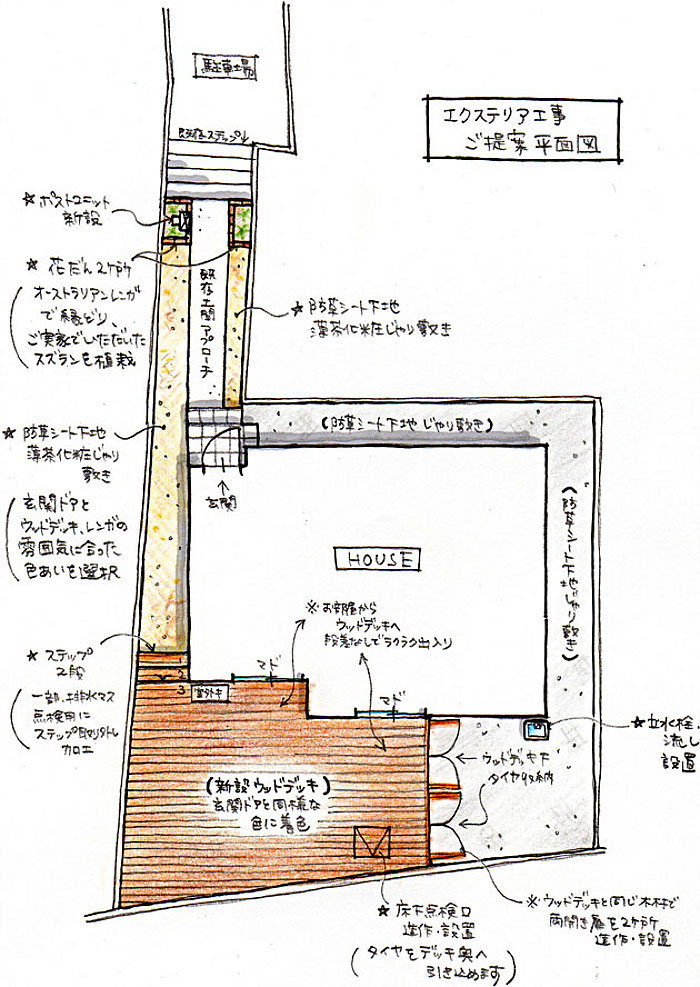 駐車場
エクステリア工事
ご提案平面図
既存ステップ
★ポストユニット
新設
★花だん2ヶ所
(オーストラリアンレンガ
で縁どり、
ご実家でいただいた
スズランを植栽)
既存土間アプローチ
★防草シート下地
薄茶化粧じゃり敷き
★防草シート下地
薄茶化粧じゃり
敷き
(玄関ドアと
ウッドデッキ、レンガの
雰囲気に合った
色あいを選択)
(防草シート下地じゃり敷き)
(防草シート下地じゃり敷き)
玄関
HOUSE
※お部屋から
ウッドデッキへ
段差なしでラクラク出入り
★ステップ
2段
(一部、排水マス
点検用に
ステップ取り外し
加工)
1
2
3
マド
室外キ
マド
★立水栓、
流し
設置
ウッドデッキ下
タイヤ収納
(新設ウッドデッキ)
玄関ドアと同様な
色に着色
★床下点検口
造作・設置
(タイヤをデッキ奥へ
引き込めます)
※ウッドデッキと同じ木材で
両開き扉を2ヶ所
造作・設置